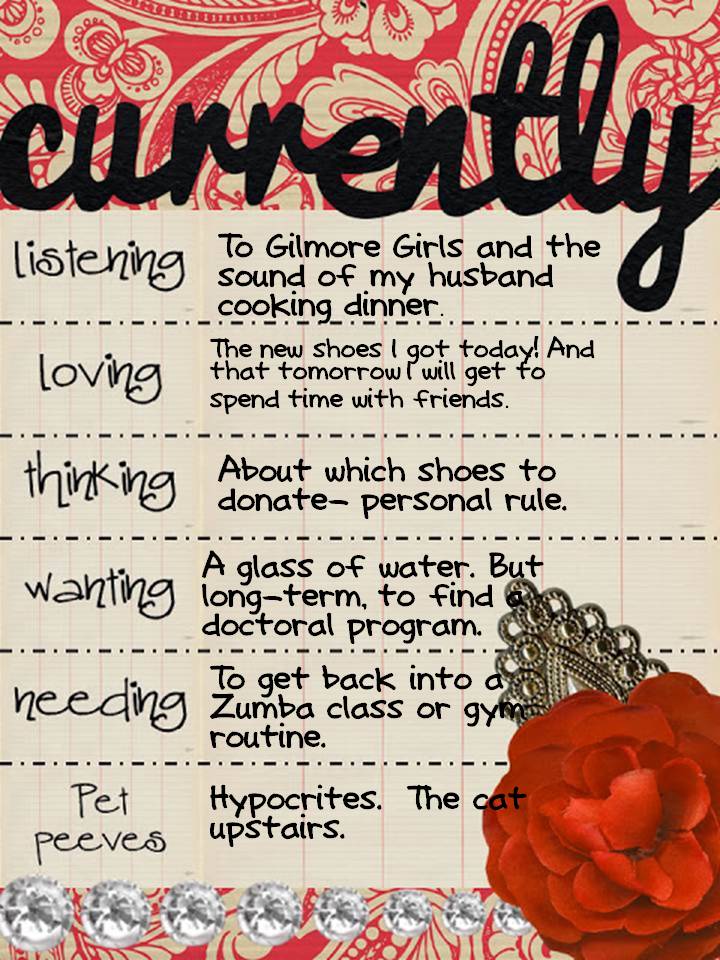 currently
listening
To Gilmore Girls and the
sound of my husband
cooking dinner.
loving
The new shoes I got today! And
that tomorrow I will get to
spend time with friends.
thinking
About which shoes to
donate- personal rule.
wanting
A glass of water. But
long-term, to find a
doctoral program.
needing
To get back into a
Zumba class or gym
routine.
Pet
peeves
Hypocrites. The cat
upstairs.